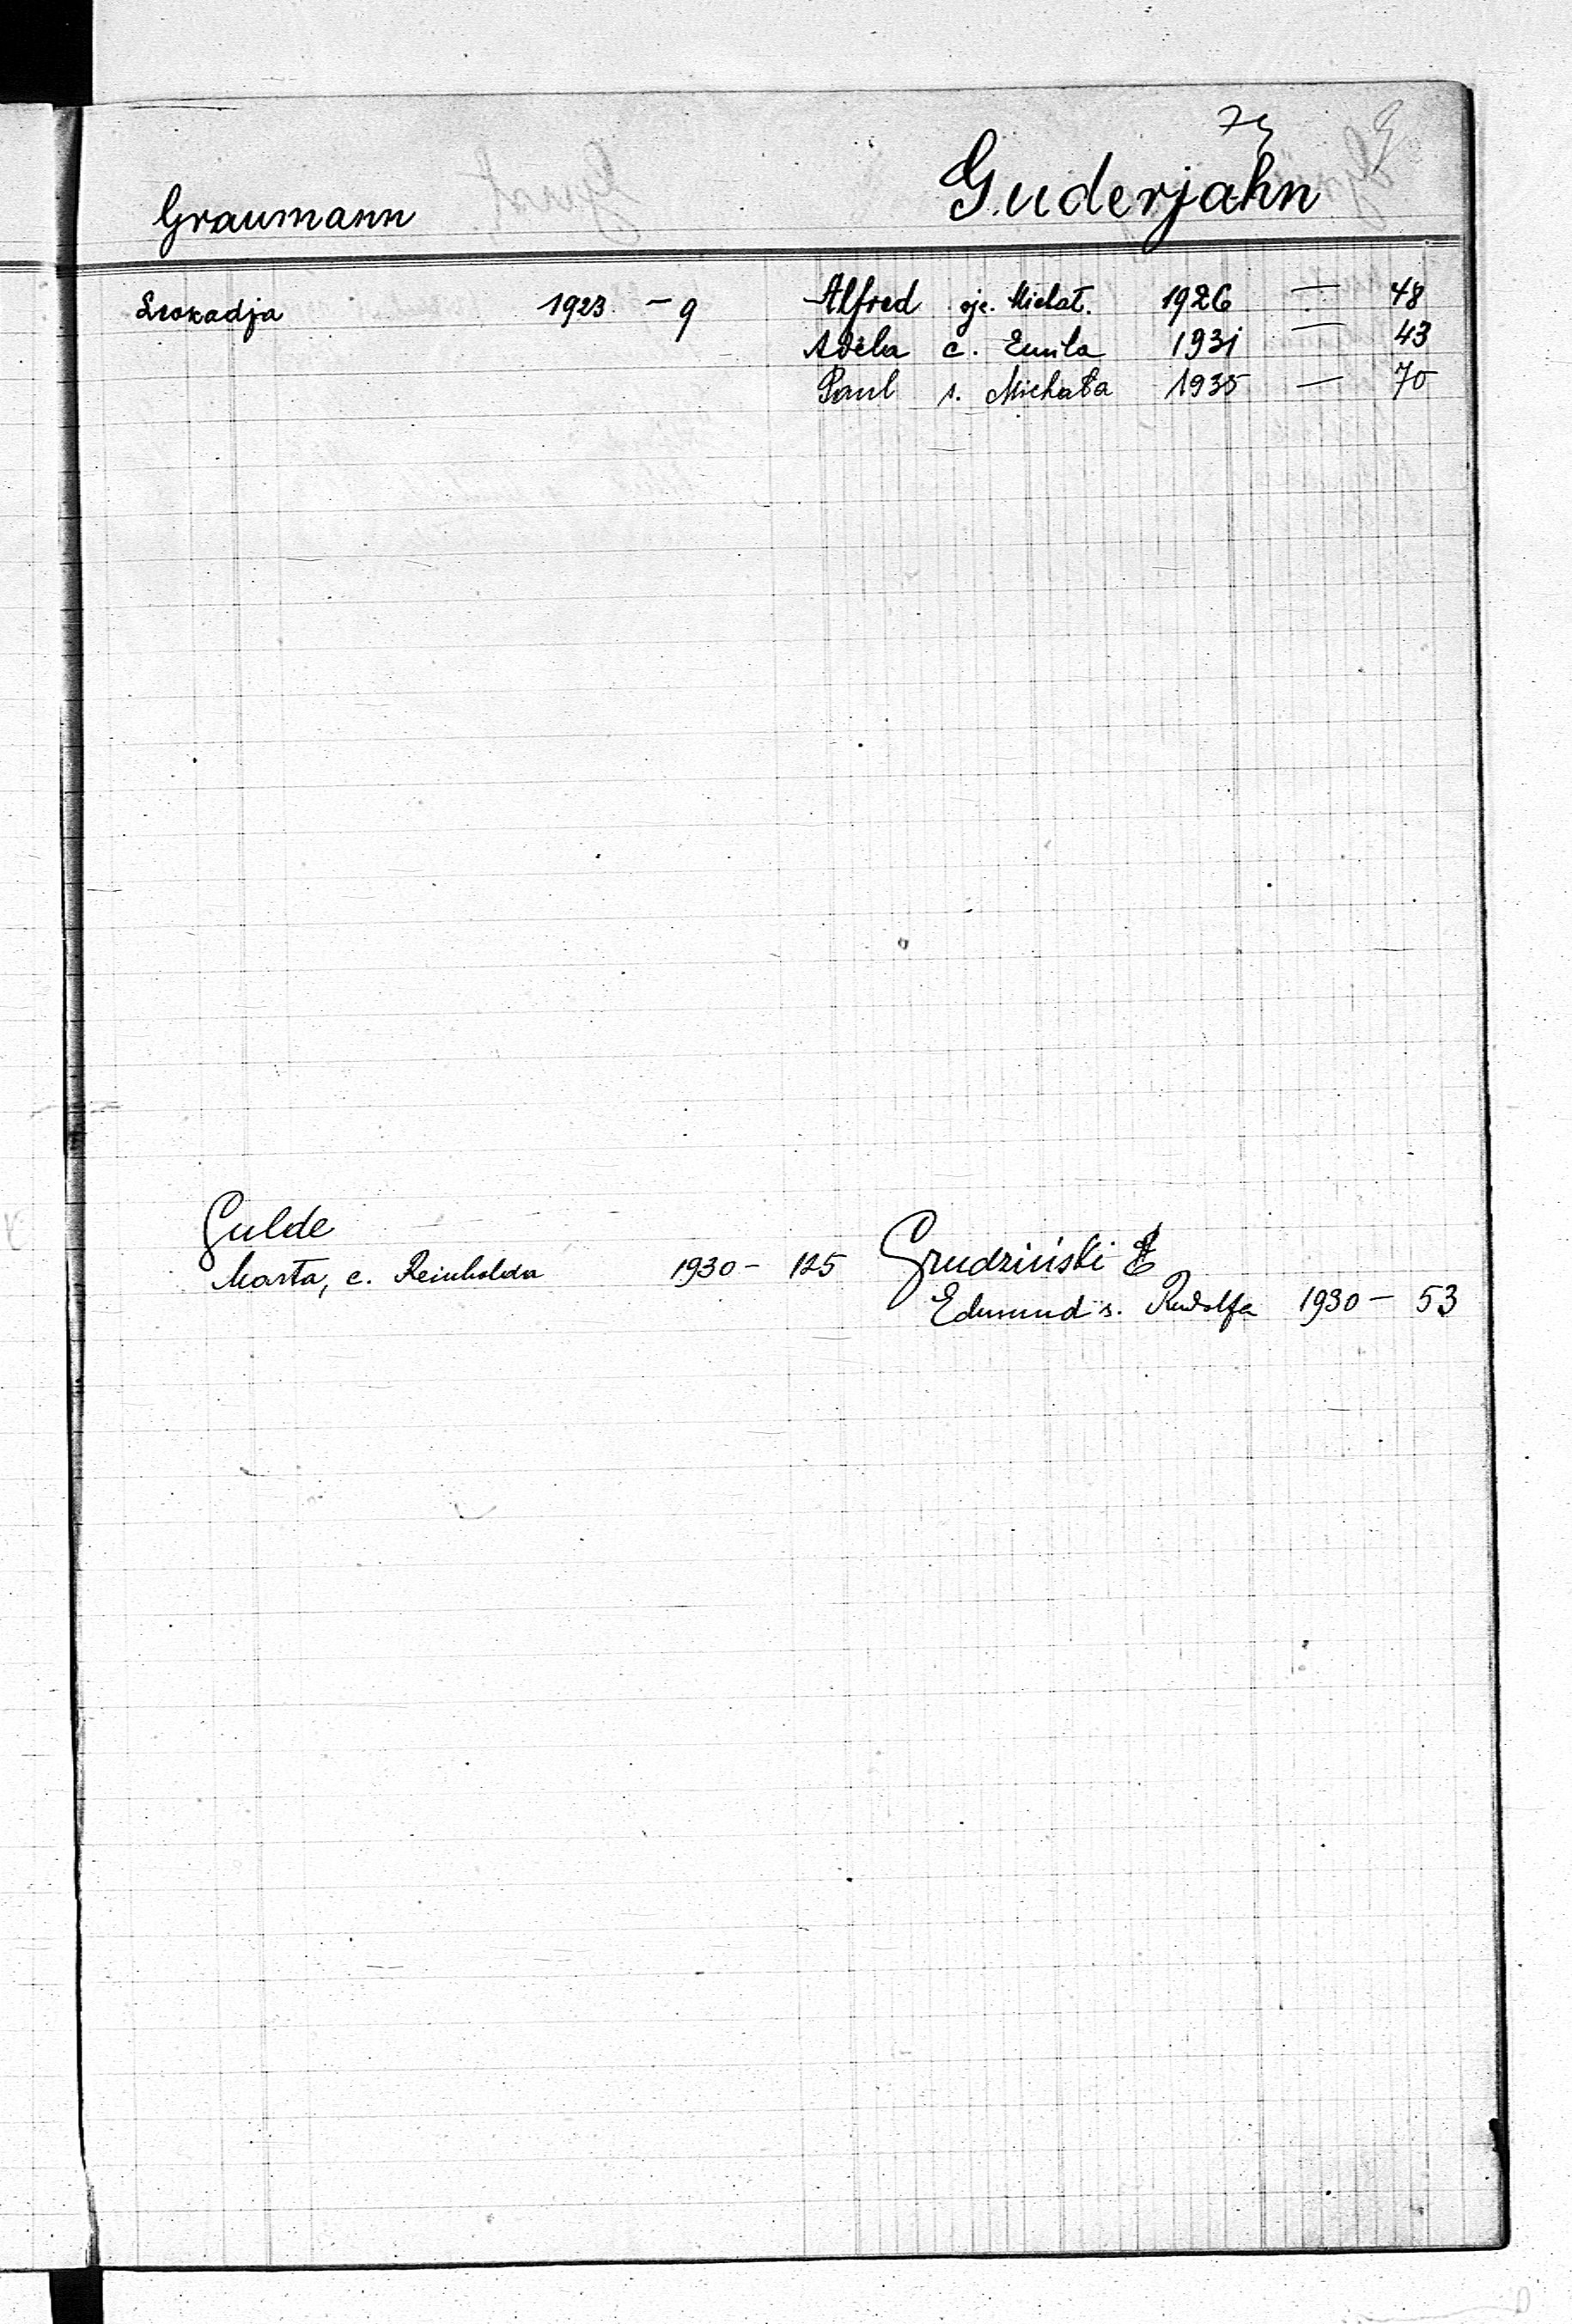 Graumann
Leokadja 1923 - 9
Guderjahn
Alfred ojc. Michał. 1926 — 48
Adela c. Emila 1931 — 43
Paul s. Michała 1935 — 70
Gulde
Marta, c. Reinholda 1930 - 125
Grudziński E
Edmund s. Rudolfa 1930 - 53